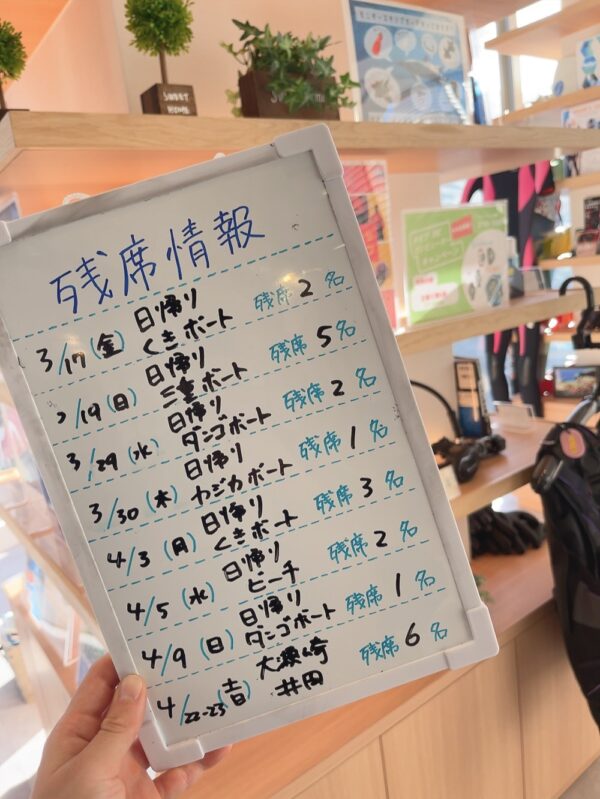 残席情報
3/17(金) 日帰り くきボート 残席2名
3/19(日) 日帰り 三重ボート 残席5名
3/29(水) 日帰り ダンゴボート 残席2名
3/30(木) 日帰り カジカボート 残席1名
4/3(月) 日帰り くきボート 残席3名
4/5(水) 日帰り ビーチ 残席2名
4/9(日) 日帰り ダンゴボート 残席1名
4/22-23(土日) 大瀬崎 井田 残席6名
SWEET
HOME